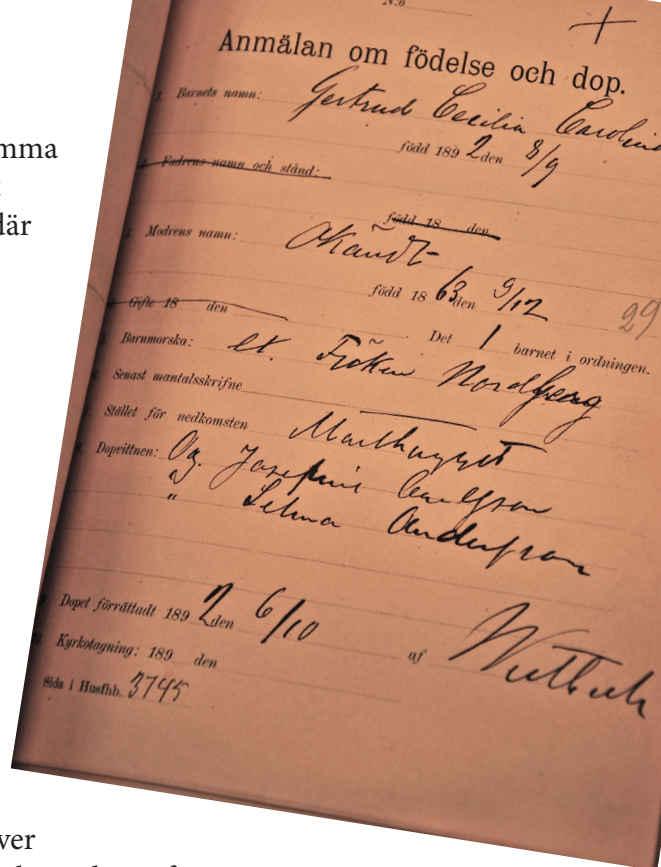 N:o
Anmälan om födelse och dop.
1. Barnets namn: Gertrud Cecilia Carolina
född 1892 den 8/9
2. Fadrens namn och stånd:
född 18 den
3. Modrens namn: Okänd
född 1863 den 9/12
29
4. Gifte 18 den
Det 1 barnet i ordningen.
5. Barnmorska: ex. Fröken Nordberg
6. Senast mantalsskrifne
7. Stället för nedkomsten
8. Dopvittnen: Josefine Carlsson
" Selma Andersson
9. Dopet förrättadt 1892 den 6/10
af
10. Kyrkotagning: 189 den
Sida i Husfhb. 3745
mma
där
ver